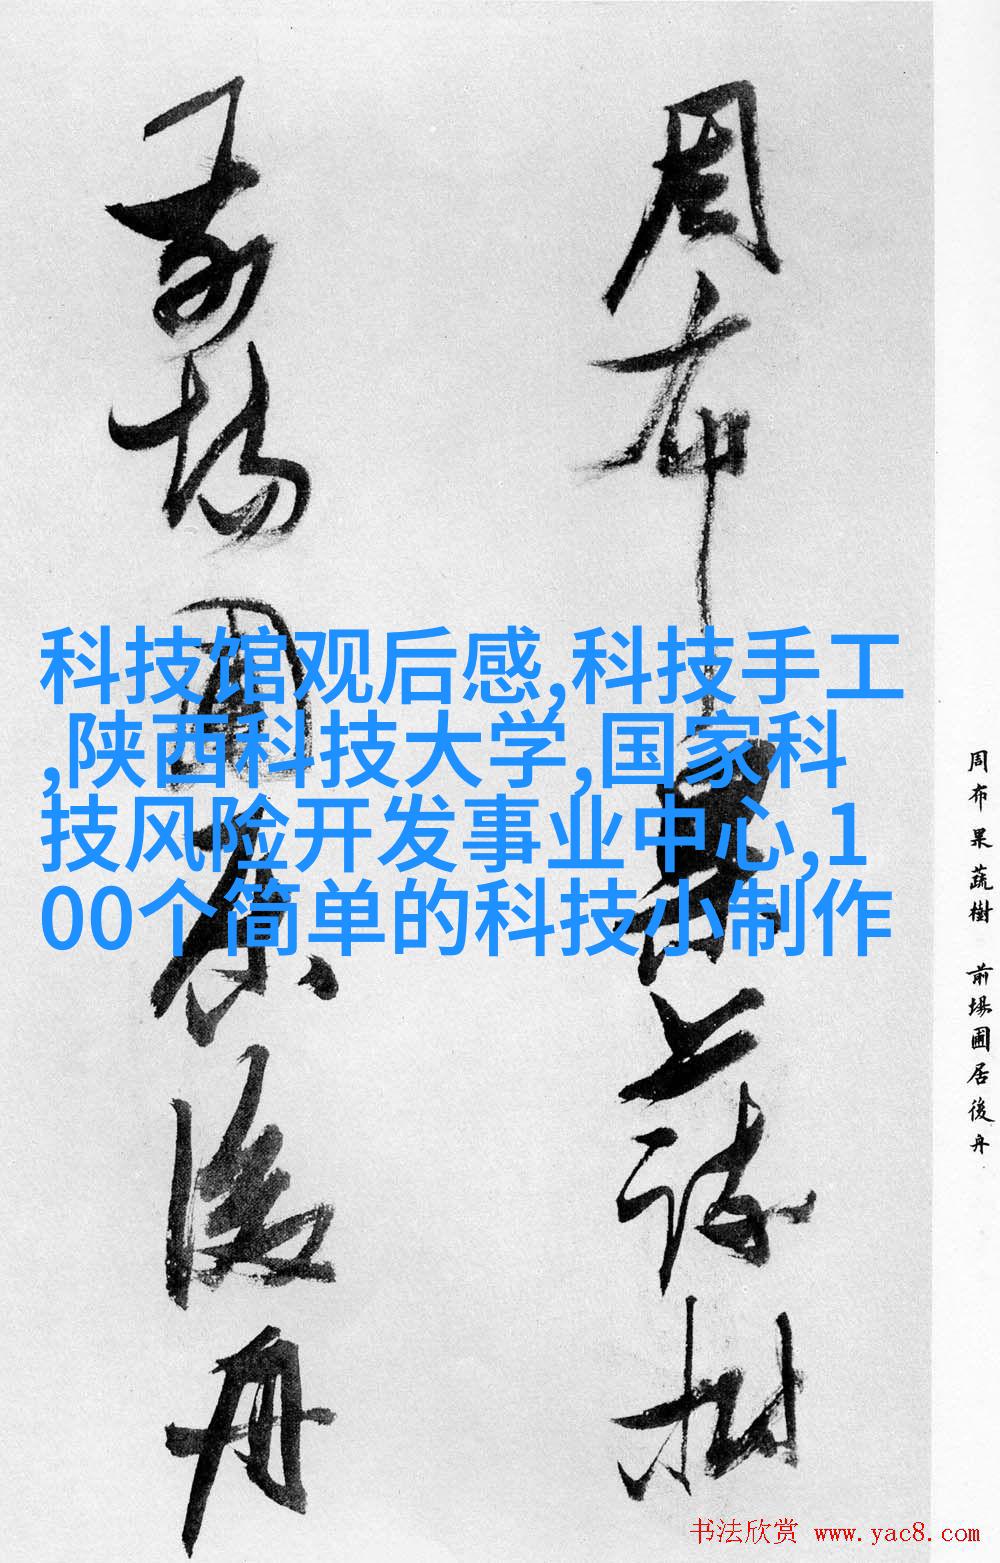 周布果蔬樹
前場圃居後舟
科技馆观后感,科技手工
,陕西科技大学,国家科
技风险开发事业中心,1
00个简单的科技小制作
周布果蔬樹 前場圃居後舟
书法欣赏 www.yac8.com